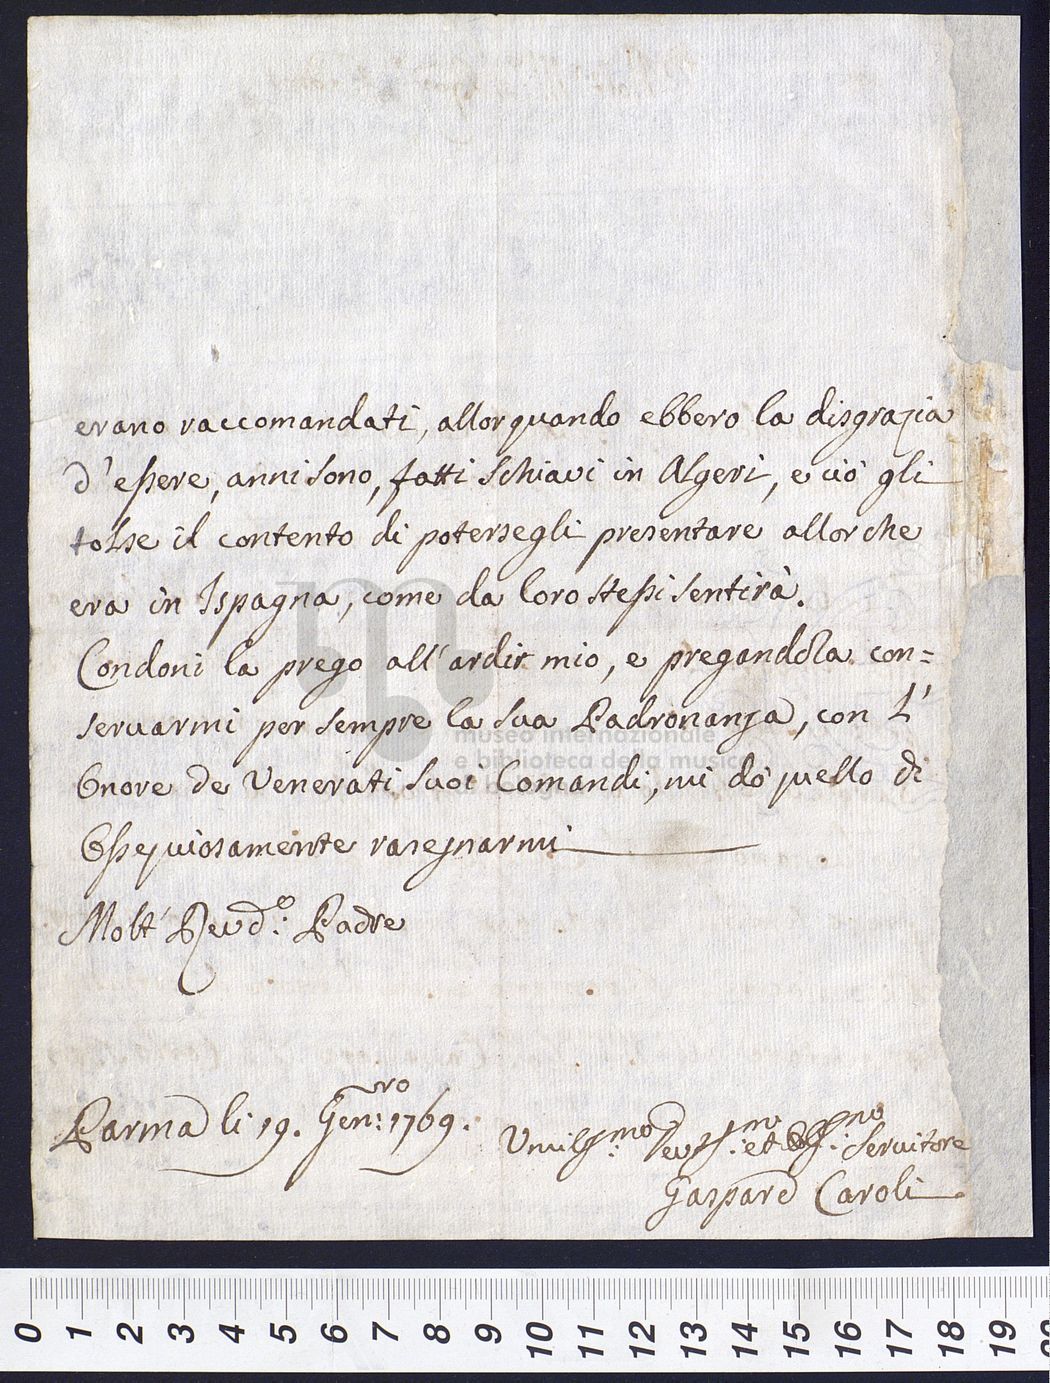 erano raccomandati, allorquando ebbero la disgrazia
d'essere, anni sono, fatti schiavi in Algeri, e ciò gli
tolse il contento di potersegli presentare allorche
era in Ispagna, come da loro stessi sentirà.
Condoni la prego all'ardir mio, e pregandola con=
servarmi per sempre la sua Padronanza, con l'
Onore de Venerati suoi Comandi, mi dò quello di
Ossequiosamente rasegnarmi
Molt' Revdo: Padre
Parma li 19. Genro: 1769.
Umilssmo: Devssmo: et Ossmo: Servitore
Gaspare Caroli
museo internazionale
e biblioteca della musica
0 1 2 3 4 5 6 7 8 9 10 11 12 13 14 15 16 17 18 19